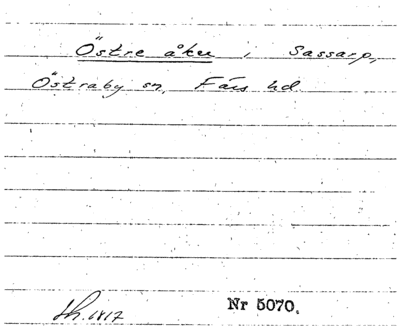 Östre åker i Sassarp,
Östraby sn, Färs hd
Sk. 1817 Nr 5070.